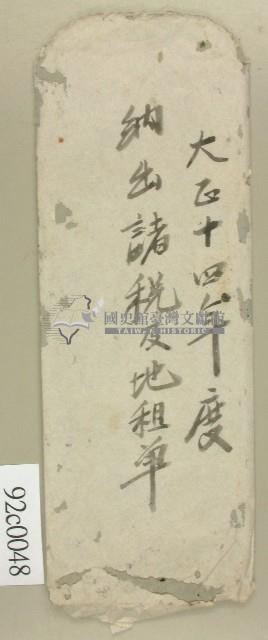 大正十四年度
納出諸税及地租单
國史館臺灣文獻館
TAIWAN HISTORICA
92c0048